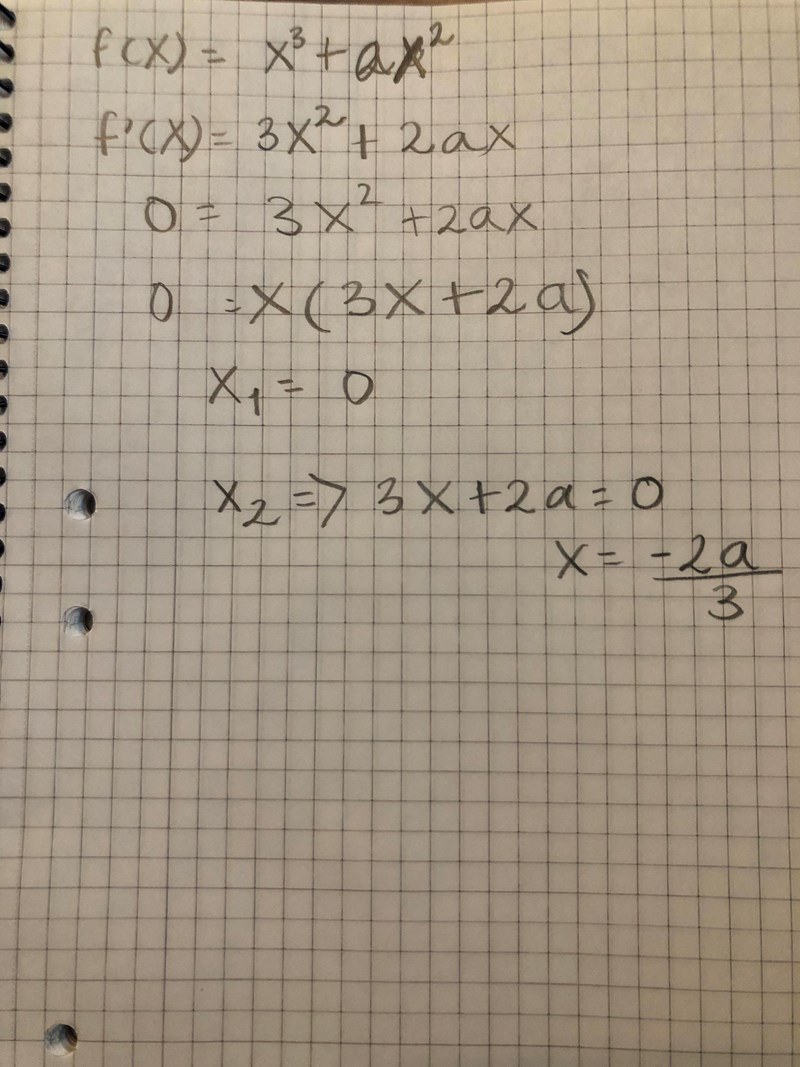 f(x) = x³ + ax²
f'(x) = 3x² + 2ax
0 = 3x² + 2ax
0 = x(3x + 2a)
x₁ = 0
x₂ => 3x + 2a = 0
x = -2a/3